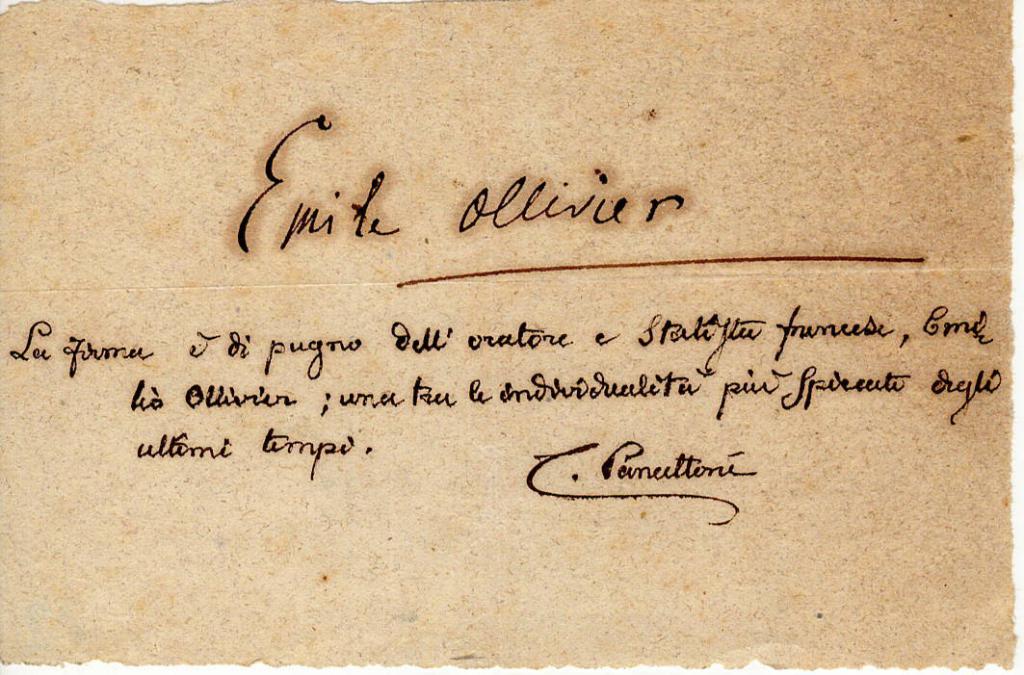 Emile Ollivier
La firma è di pugno dell' oratore e Statista francese, Emi-
lio Ollivier ; una tra le individualità più spiccate degli
ultimi tempi.